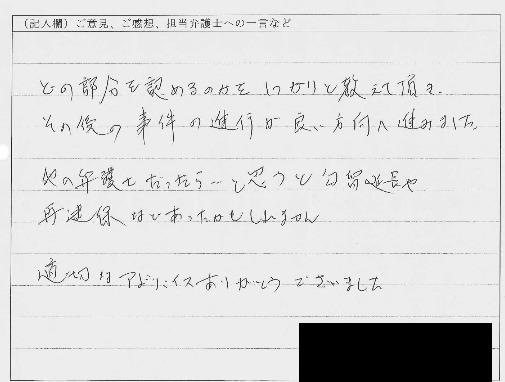 (記入欄)ご意見、ご感想、担当弁護士への一言など
どの部分を認めるのかをしっかりと教えて頂き、
その後の事件の進行が良い方向へ進みました。
他の弁護士だったら…と思うと勾留延長や
再逮捕などあったかもしれません
適切なアドバイスありがとうございました